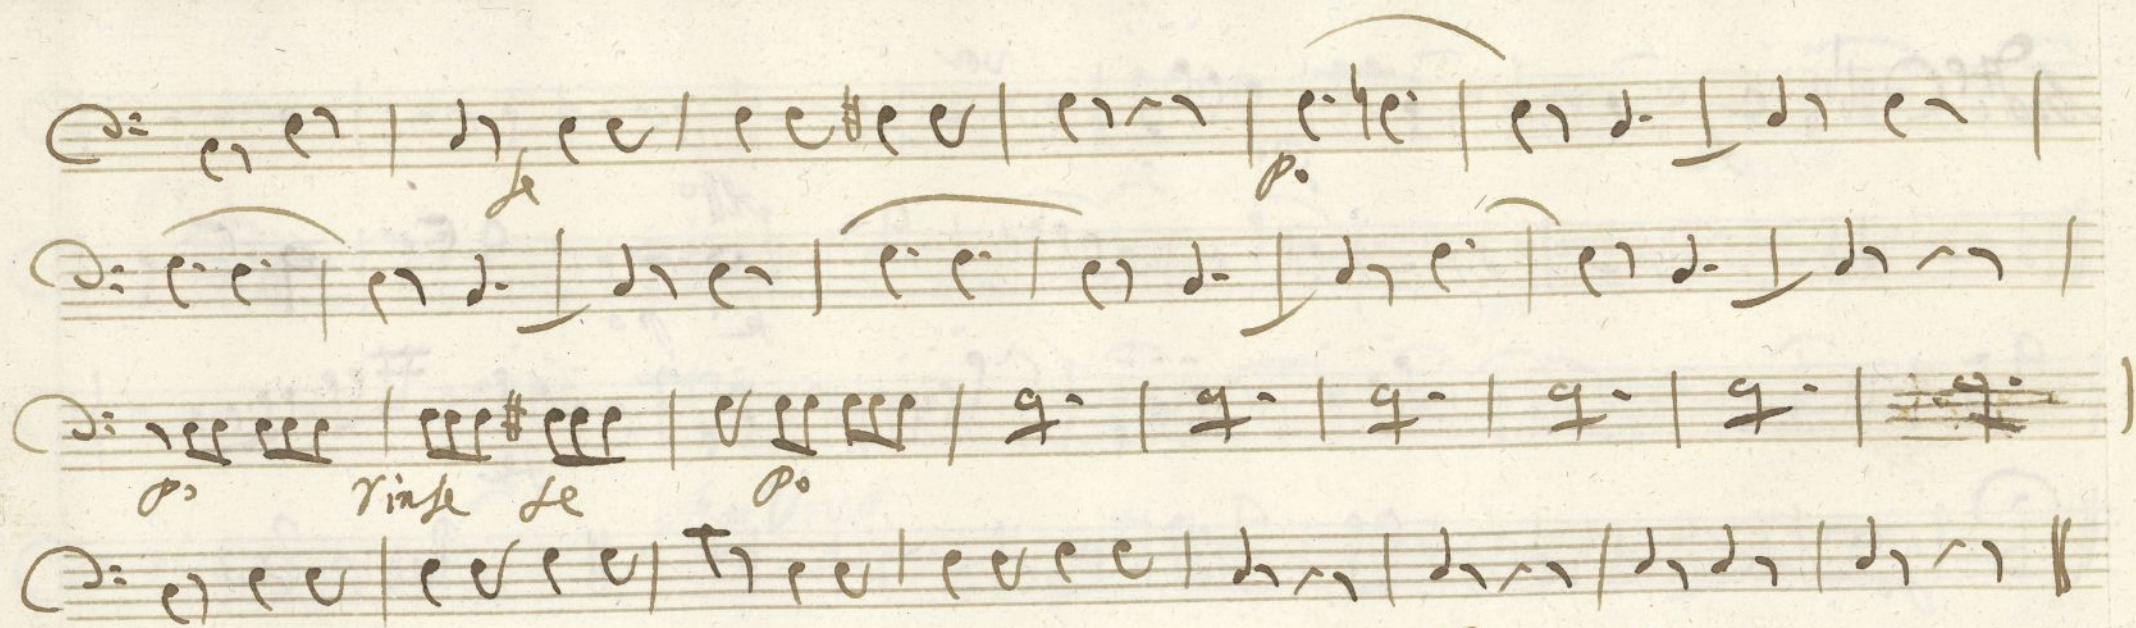 fe p.
p. rinfe fe p.